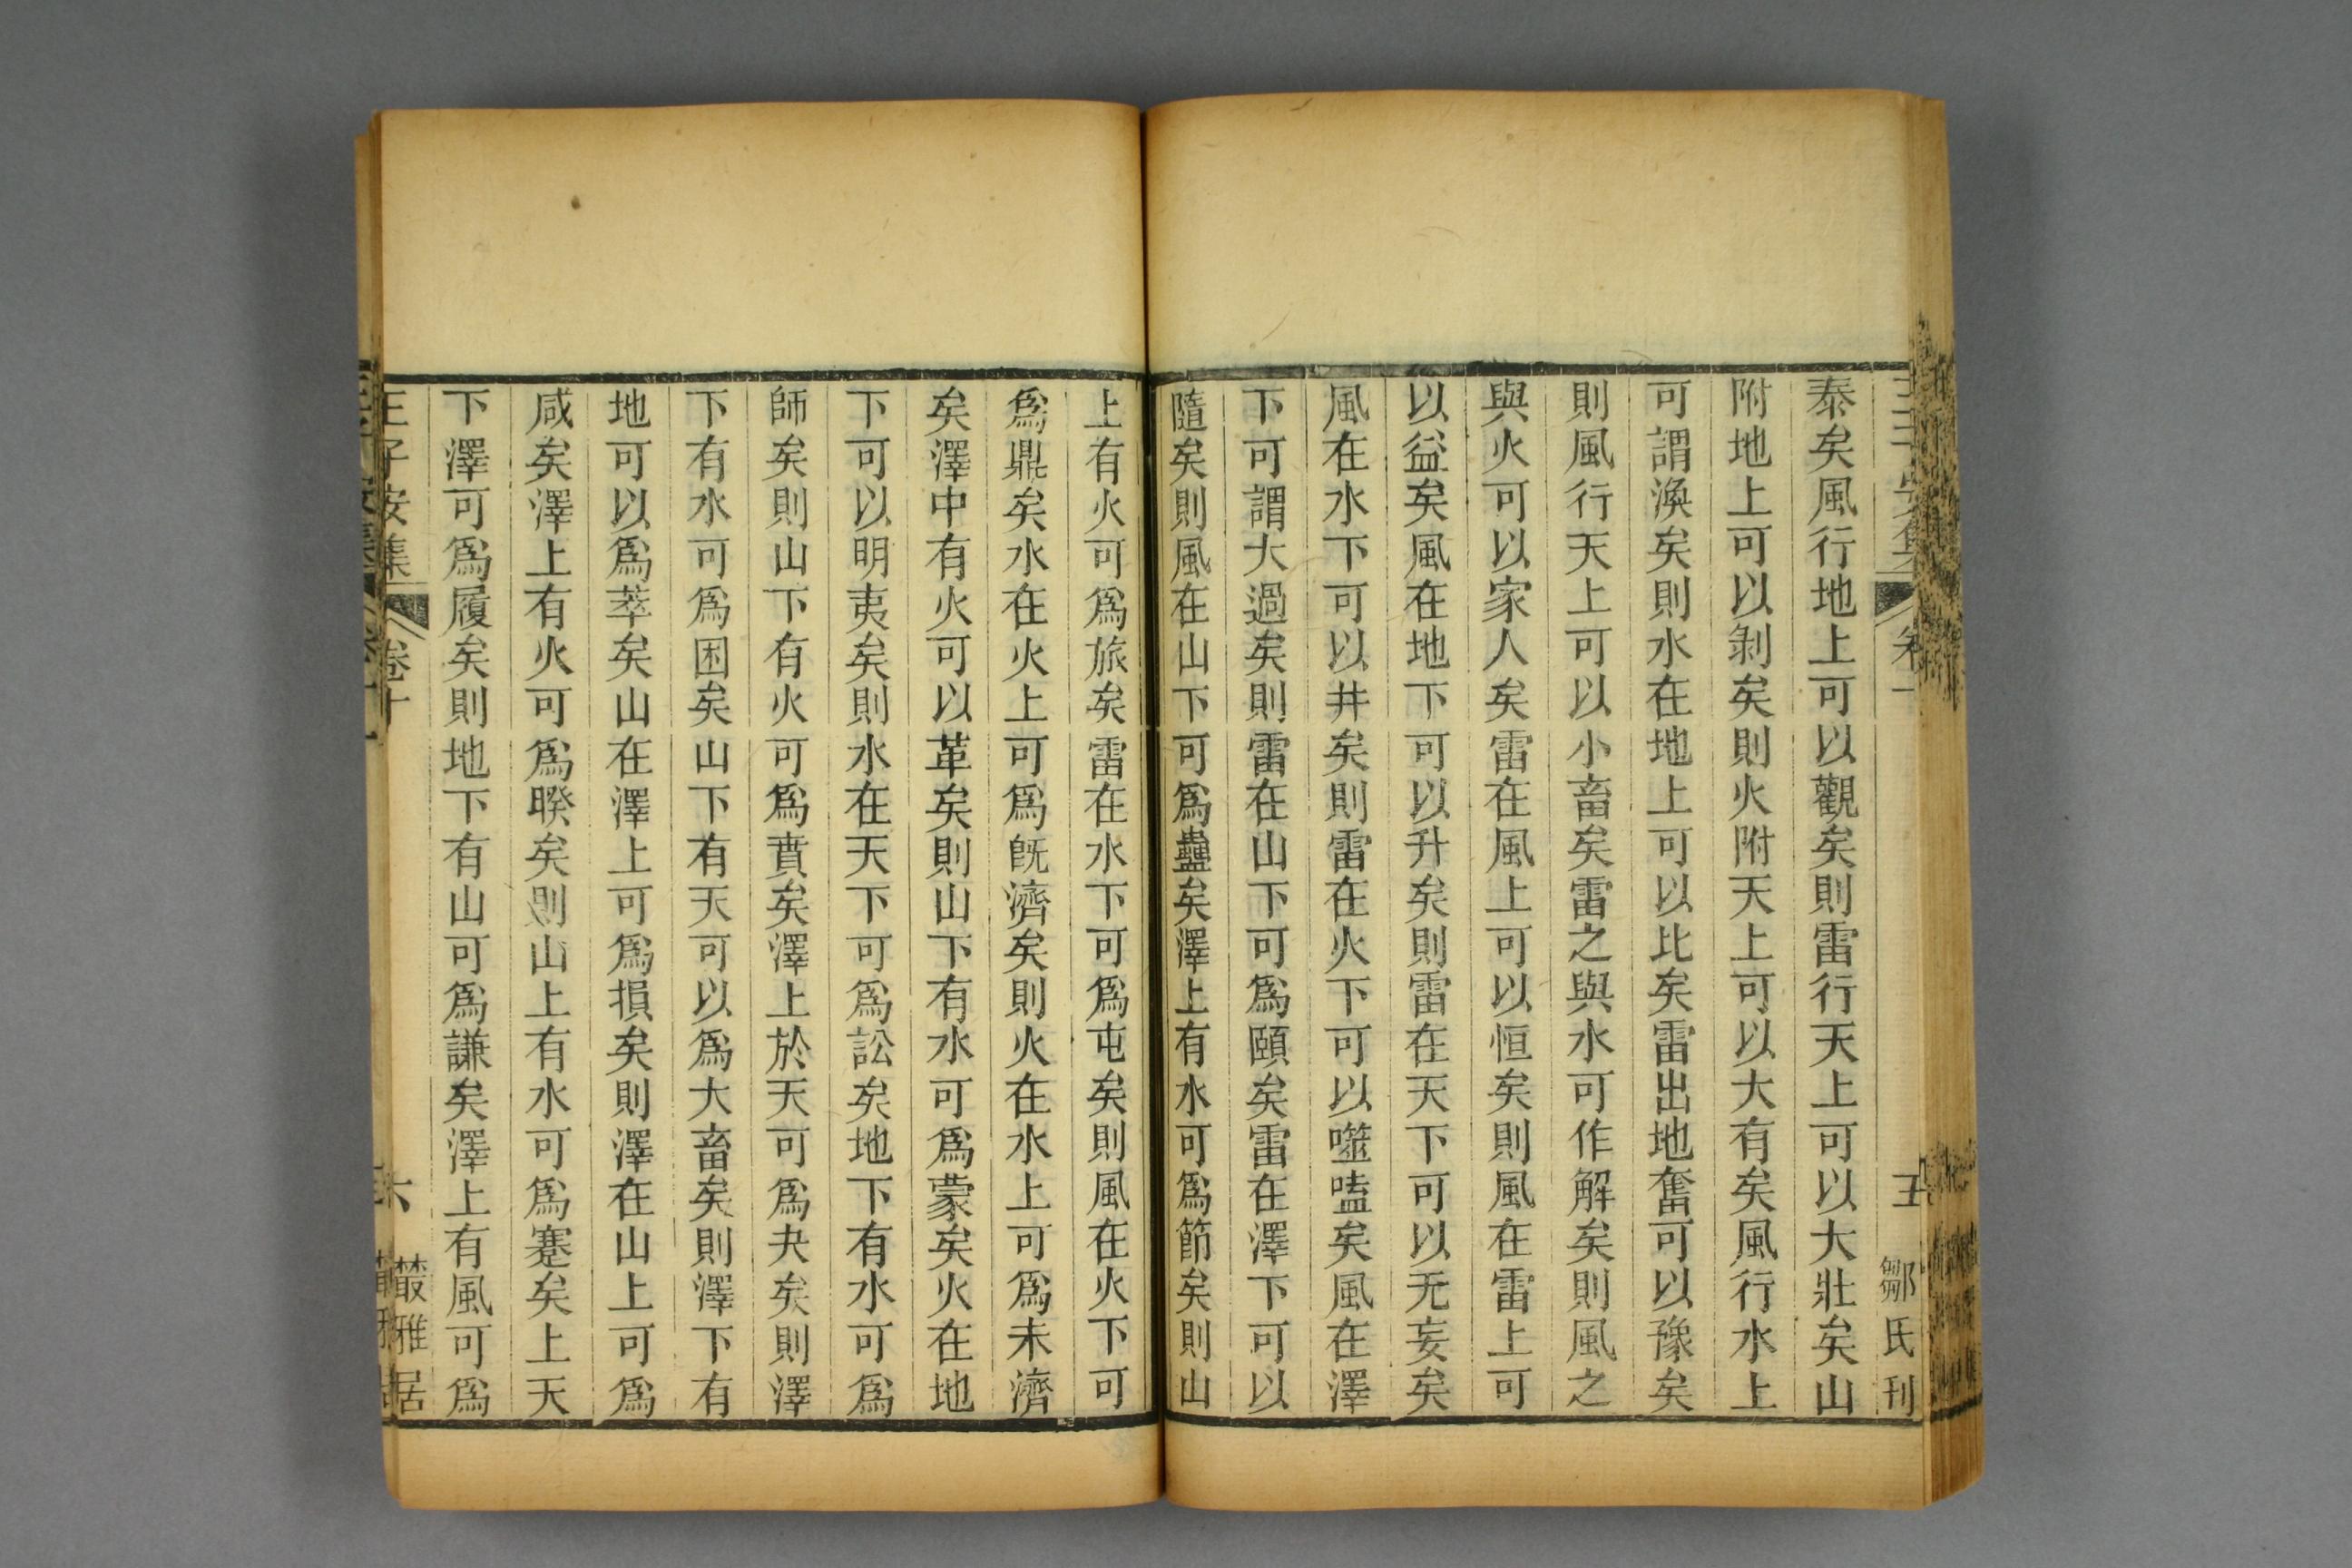 泰矣風行地上可以觀矣則雷行天上可以大壯矣山
附地上可以剝矣則火附天上可以大有矣風行水上
可謂渙矣則水在地上可以比矣雷出地奮可以豫矣
則風行天上可以小畜矣雷之與水可作解矣則風之
與火可以家人矣雷在風上可以恒矣則風在雷上可
以益矣風在地下可以升矣則雷在天下可以无妄矣
風在水下可以井矣則雷在火下可以噬嗑矣風在澤
下可謂大過矣則雷在山下可爲頤矣雷在澤下可以
隨矣則風在山下可爲蠱矣澤上有水可爲節矣則山
上有火可爲旅矣雷在水下可爲屯矣則風在火下可
爲鼎矣水在火上可爲旣濟矣則火在水上可爲未濟
矣澤中有火可以革矣則山下有水可爲蒙矣火在地
下可以明夷矣則水在天下可爲訟矣地下有水可爲
師矣則山下有火可爲賁矣澤上於天可爲夬矣則澤
下有水可爲困矣山下有天可以爲大畜矣則澤下有
地可以爲萃矣山在澤上可爲損矣則澤在山上可爲
咸矣澤上有火可爲睽矣則山上有水可爲蹇矣上天
下澤可爲履矣則地下有山可爲謙矣澤上有風可爲
王子安集 卷十 六 叢雅居
五 鄒氏刊